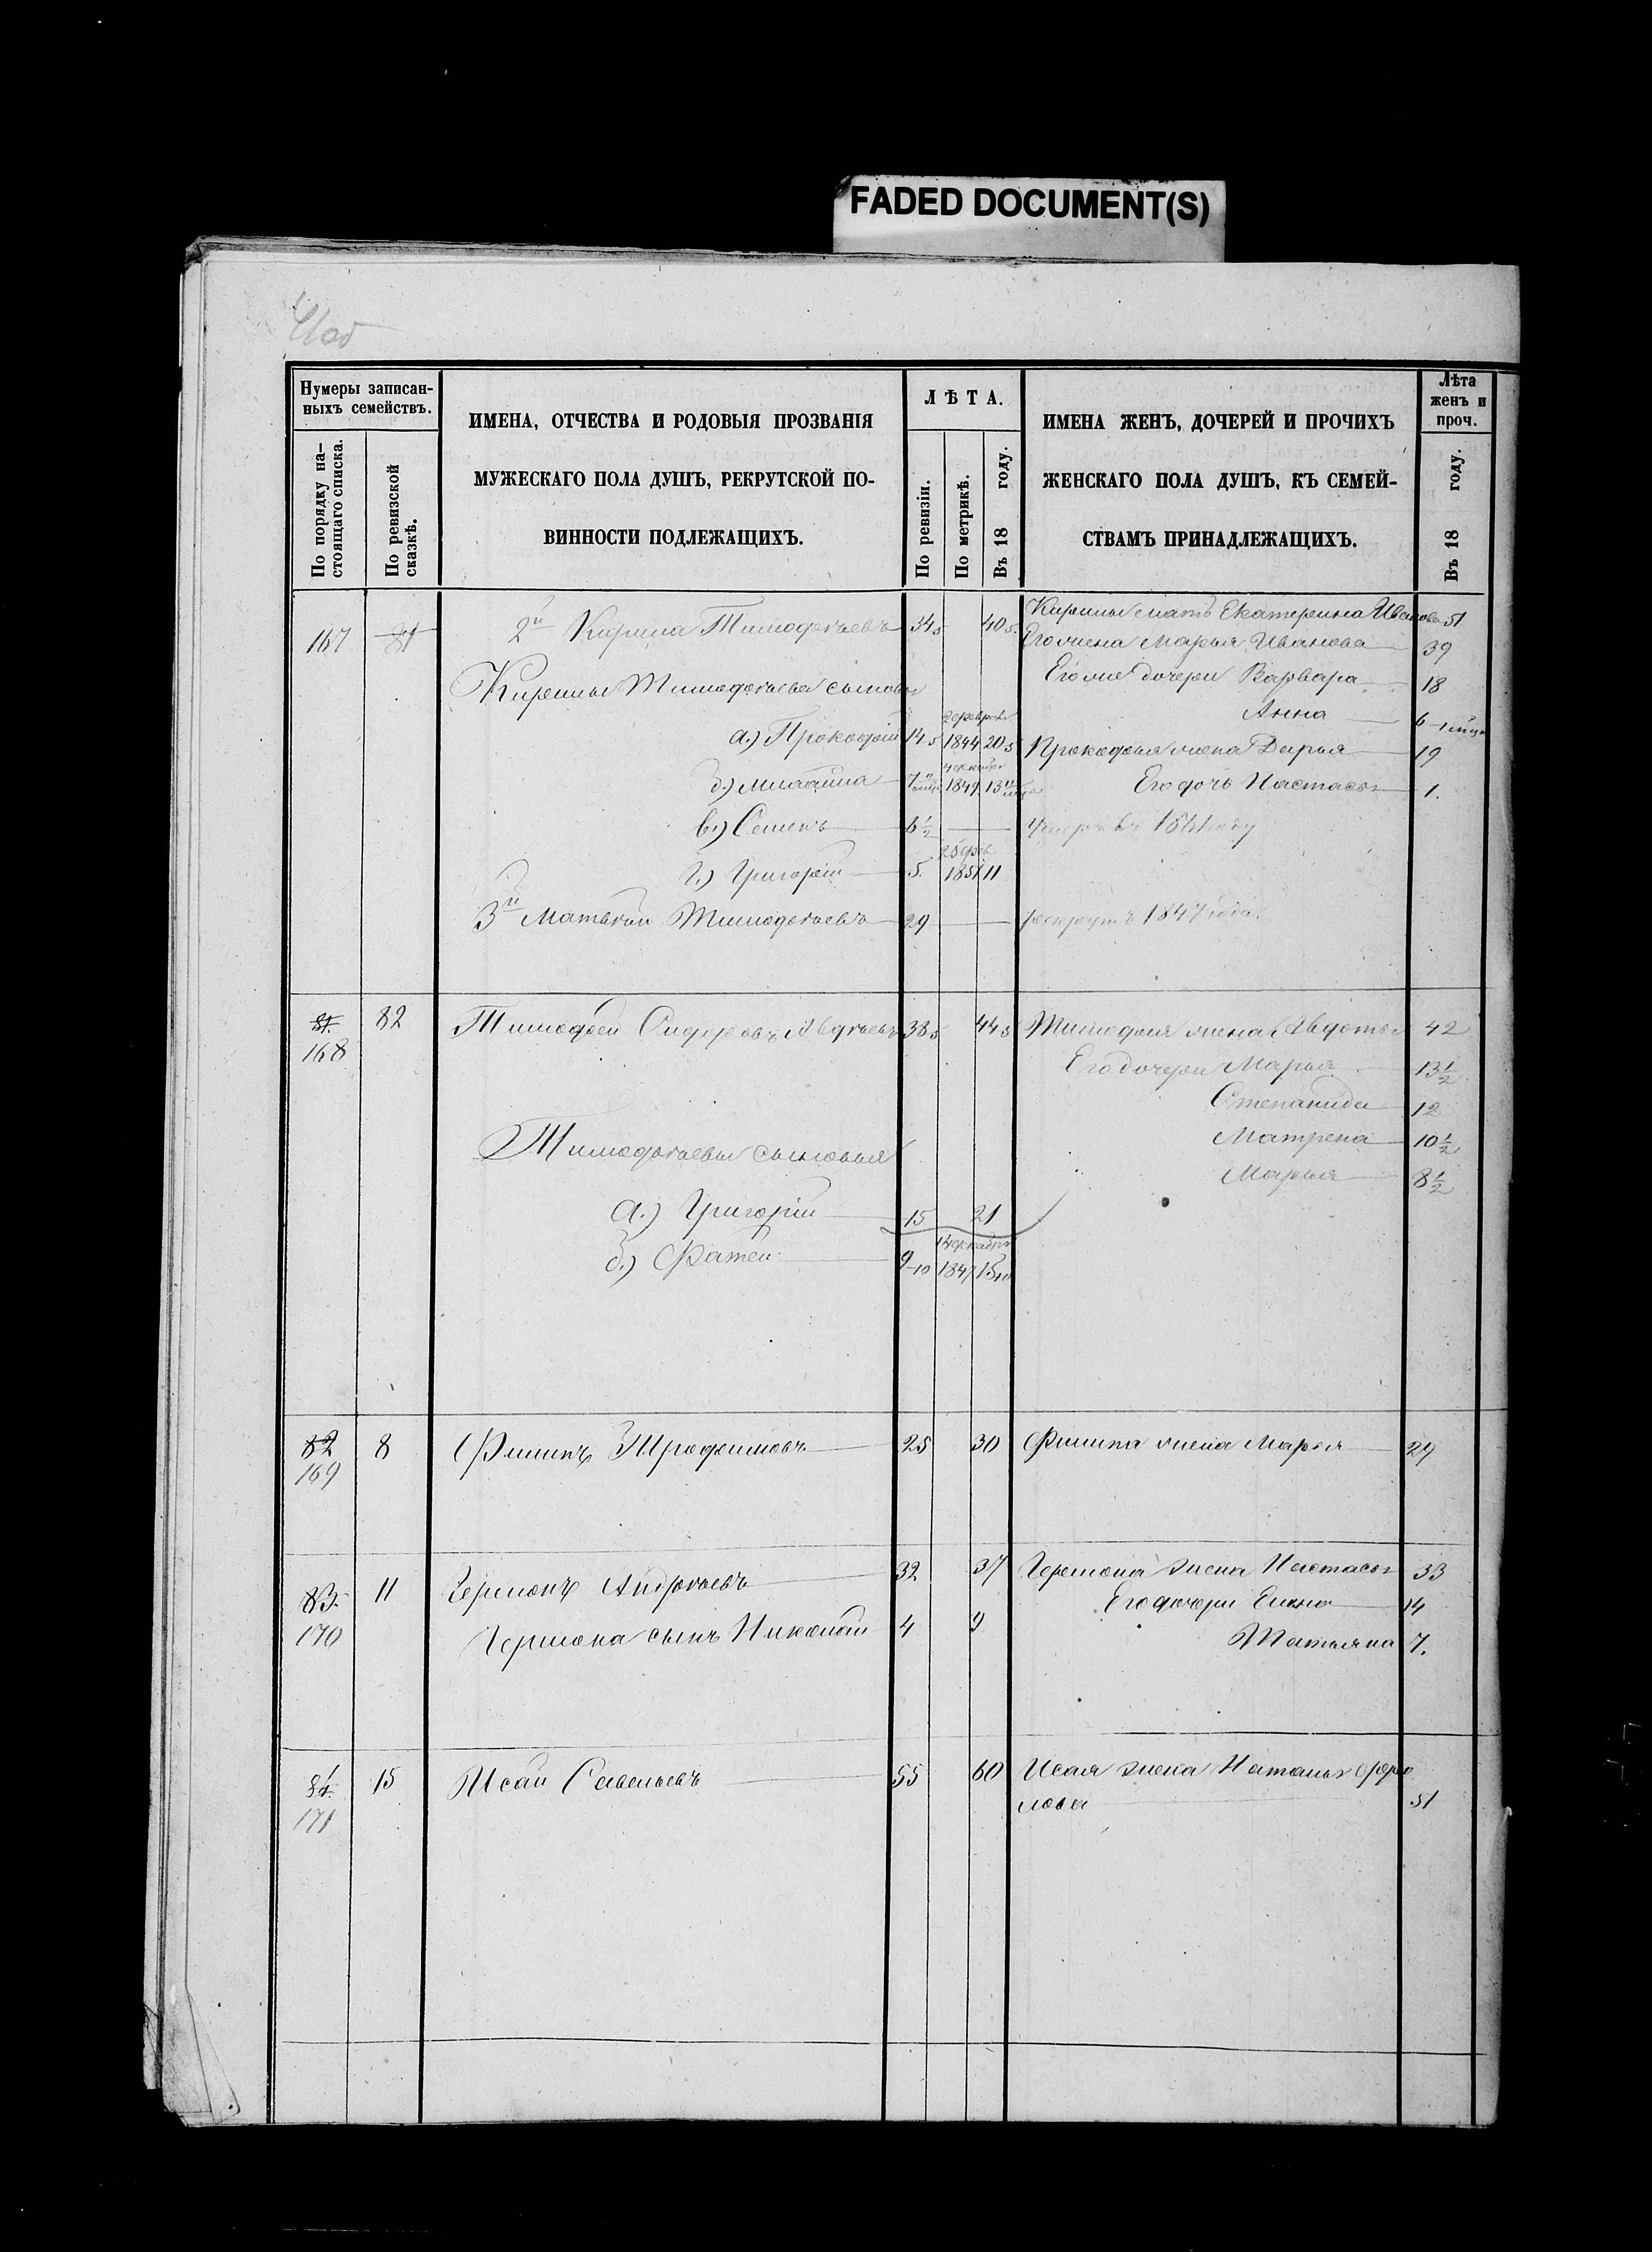 FADED DOCUMENT(S)
Нумеры записан-
ныхъ семействъ.
По порядку на-
стоящаго списка.
По ревизской
сказкѣ.
ИМЕНА, ОТЧЕСТВА И РОДОВЫЯ ПРОЗВАНІЯ
МУЖЕСКАГО ПОЛА ДУШЪ, РЕКРУТСКОЙ ПО-
ВИННОСТИ ПОДЛЕЖАЩИХЪ.
ЛѢТА.
По ревизіи.
По метрикѣ.
Въ 18 году.
ИМЕНА ЖЕНЪ, ДОЧЕРЕЙ И ПРОЧИХЪ
ЖЕНСКАГО ПОЛА ДУШЪ, КЪ СЕМЕЙ-
СТВАМЪ ПРИНАДЛЕЖАЩИХЪ.
Лѣта
женъ и
проч.
Въ 18 году.
Кирилы мать Екатерина Иванова 51
167 81 2й Кирила Тимофѣевъ 34 5 40 5 Его жена Марья Иванова 39
Кирилы Тимофѣева сыновья Его же дочери Варвара 18
Анна 6
а.) Прокофій 14 5 2 февраля 1844 20 5 Прокофья жена Дарья 19
б.) 7 1849 13 Его дочь Настасья 1.
в.) Семенъ 6 1/2 умеръ въ 1861 году
г.) Григорій 5. 25 фев 1851 11
3й Матвѣй Тимофѣевъ 29 рекрутъ 1847 года
81. 82 Тимофей Сидоровъ Авдѣевъ 38 5 44 5 Тимофея жена Авдотья 42
168 Его дочери Марья 13 1/2
Степанида 12
Матрена 10 1/2
Тимофѣевы сыновья Марья 8 1/2
а.) Григорій 15 21
б.) Фатей 9 10 1847 15 10
82 8 Филипъ Трофимовъ 25 30 Филипа жена Марья 29
169
83. 11 Гермонъ Андрѣевъ 32 37 Гермона жена Настасья 33
Его дочери Елена 14
170 Гермона сынъ Николай 4 9 Татьяна 7.
84. 15 Исай Савельевъ 55 60 Исая жена Наталья Фро
171 лова 51